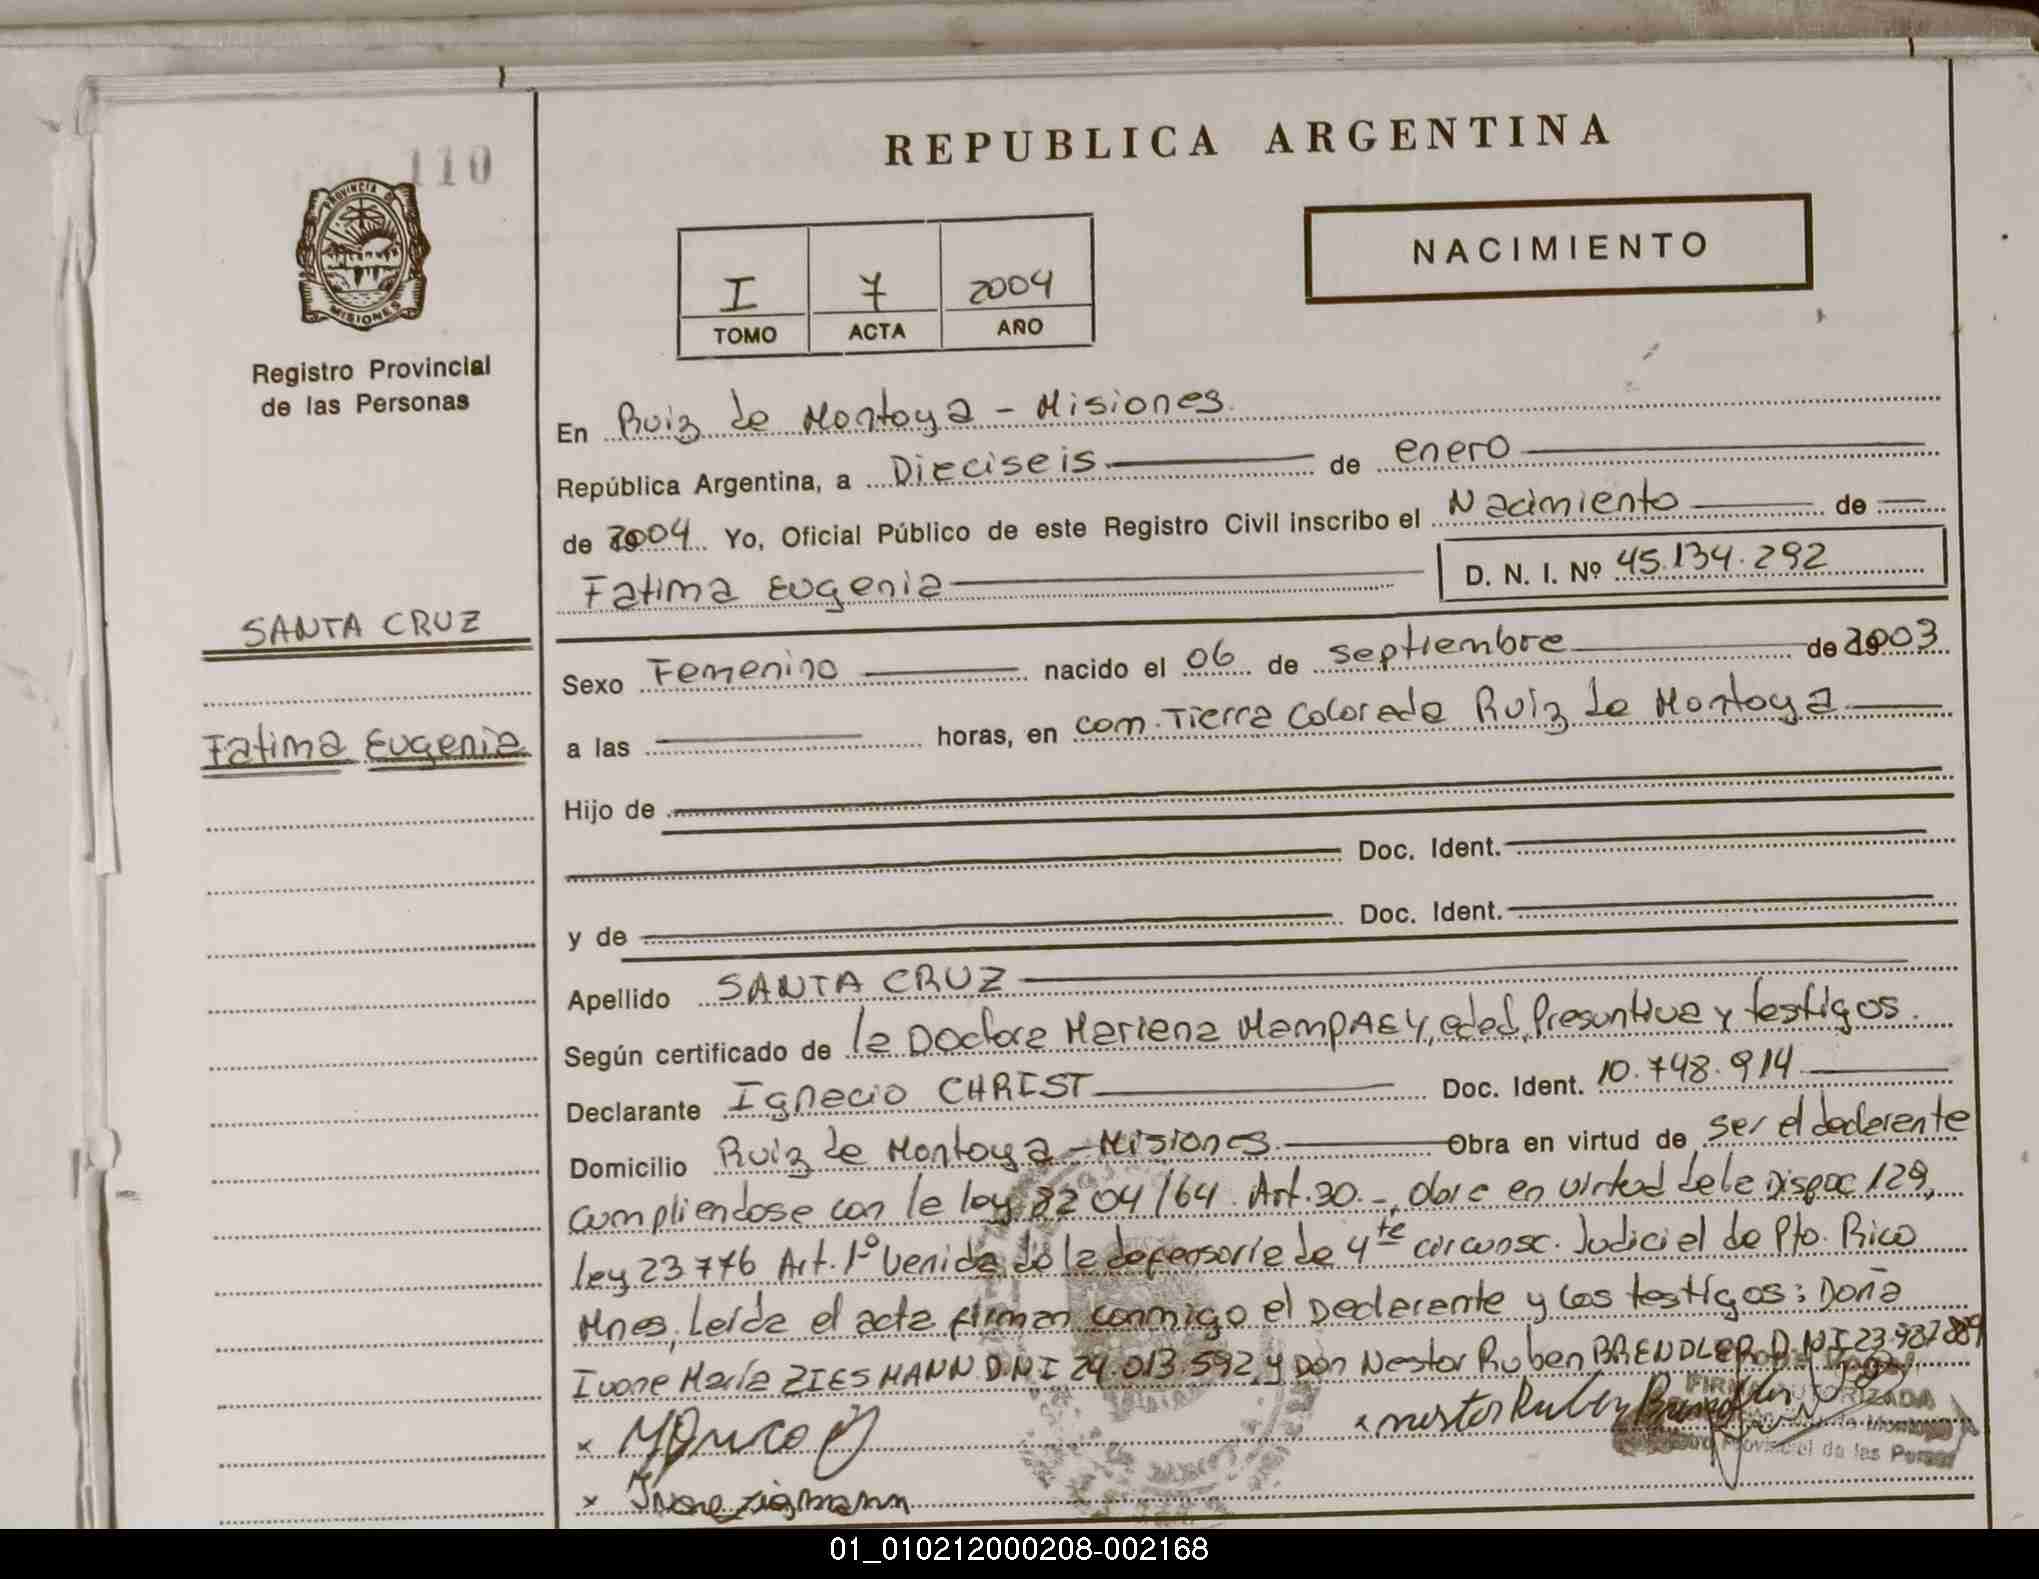 110
PROVINCIA DE
MISIONES
Registro Provincial
de las Personas
SANTA CRUZ
Fatima Eugenia
REPUBLICA ARGENTINA
NACIMIENTO
I 7 2004
TOMO ACTA AÑO
En Ruiz de Montoya - Misiones.
República Argentina, a Dieciseis de enero
de 2004 Yo, Oficial Público de este Registro Civil inscribo el Nacimiento de
Fatima Eugenia D. N. I. Nº 45.134.292
Sexo Femenino nacido el 06 de septiembre de 2003
a las horas, en com. Tierra Colorada Ruiz de Montoya
Hijo de
Doc. Ident.
y de Doc. Ident.
Apellido SANTA CRUZ
Según certificado de la Doctora Mariena MampAEY, edad Presuntiva y testigos.
Declarante Ignacio CHRIST Doc. Ident. 10.748.914
Domicilio Ruiz de Montoya - Misiones. Obra en virtud de ser el declarante
cumpliendose con la ley 8204/64. Art. 30.-, obra en virtud de la Dispoc 129,
ley 23776 Art. 1º Venida de la defensoria de 4te circunsc. Judicial de Pto. Rico
Mnes. Leída el acta firman conmigo el Declarante y los testigos: Doña
Ivone María ZIESMANN D.N.I 24.013.592 y Don Nestor Ruben BRENDLER D.N.I 23.987.889
x nestor Ruben Brendler
FIRMA AUTORIZADA
Provincial de las Personas
x Ivone ziesmann
01_010212000208-002168